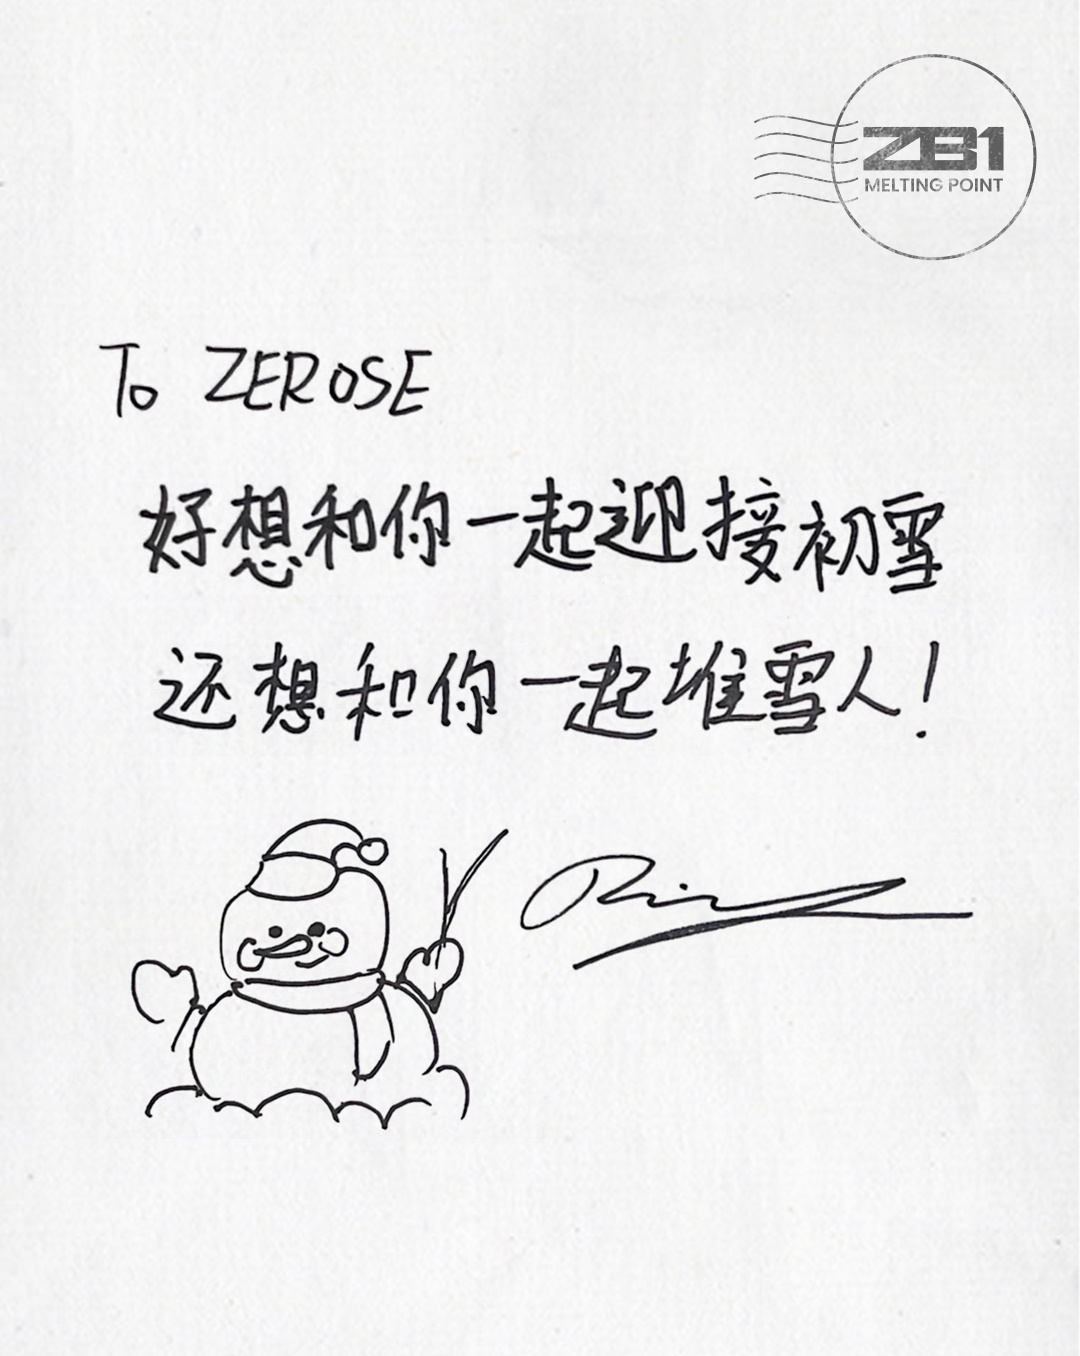 ZB1
MELTING POINT
To ZEROSE
好想和你一起迎接初雪
还想和你一起堆雪人！